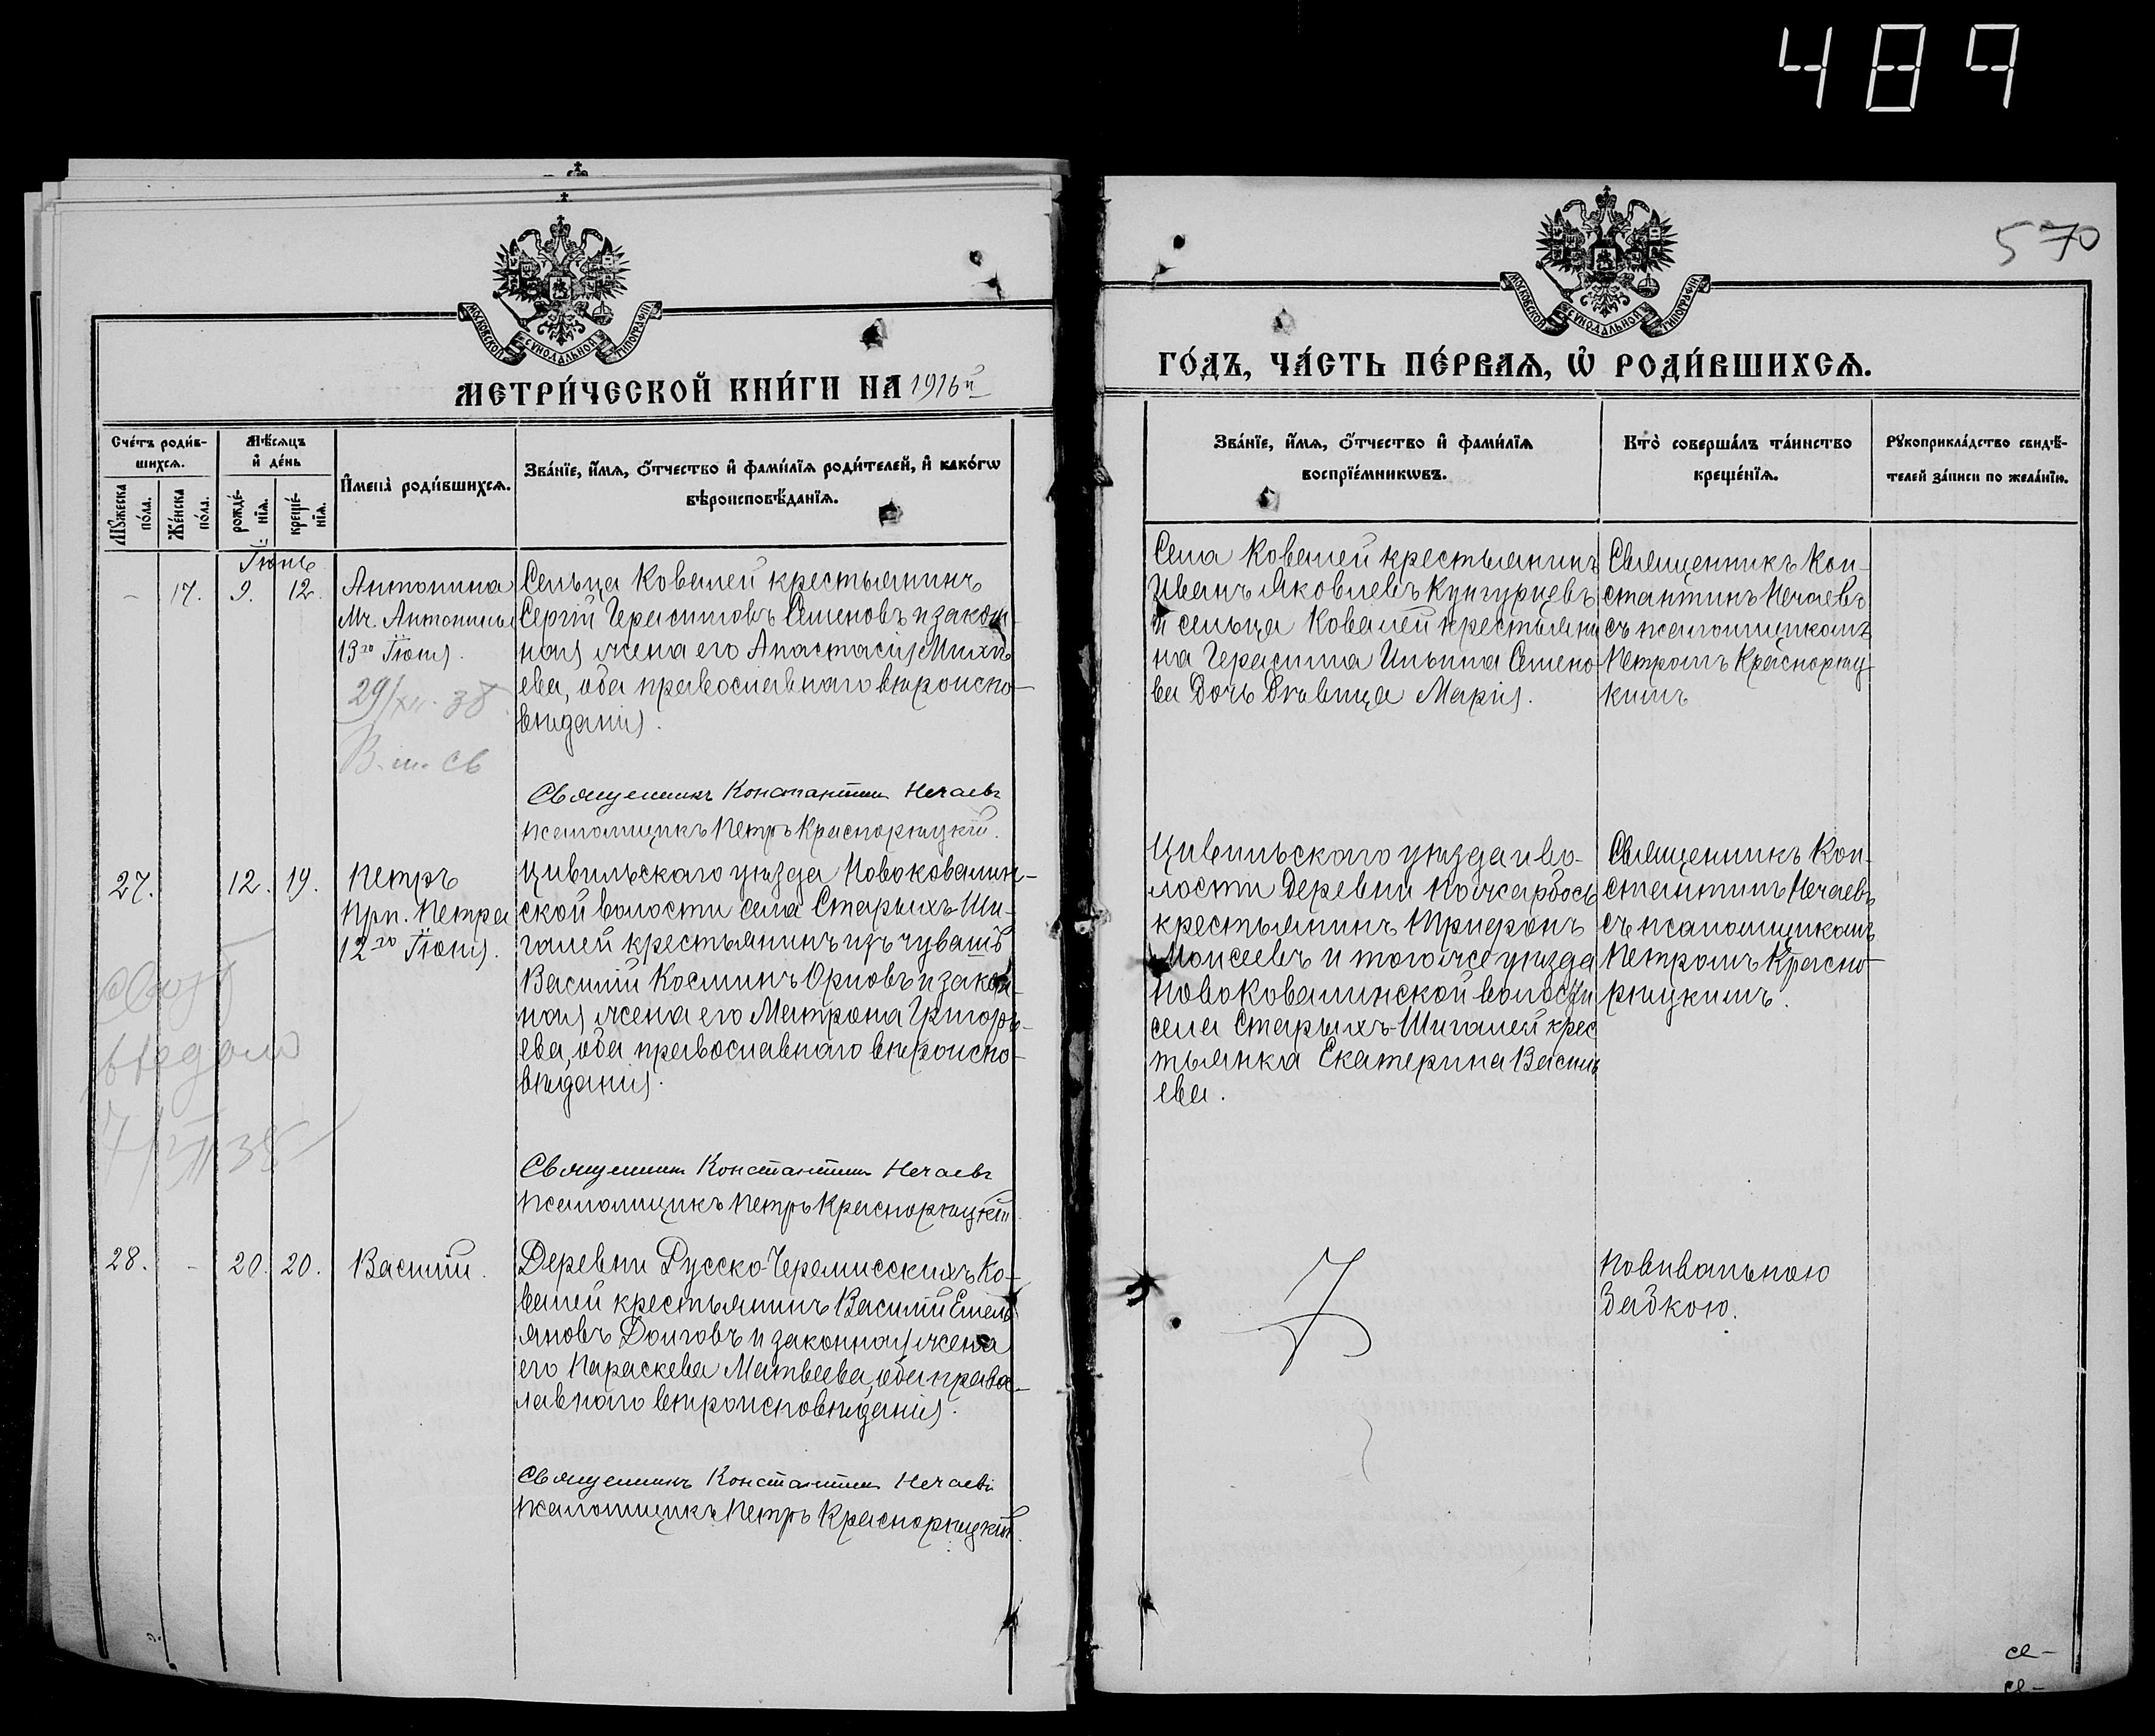 489
570
МОСКОВСКОЙ СѴНОДАЛЬНОЙ ТИПОГРАФІИ
МОСКОВСКОЙ СѴНОДАЛЬНОЙ ТИПОГРАФІИ
МЕТРИ́ЧЕСКОЙ КНИ́ГИ НА 1916й
ГО́ДЪ, ЧА́СТЬ ПЕ́РВАѦ, Ѽ РОДИ́ВШИХСѦ.
Сче́тъ роди́в-
шихсѧ.
Мѣ́сѧцъ
и҆ де́нь
Мꙋ́жеска
по́ла.
Же́нска
по́ла.
рожде́-
нїѧ.
креще́-
нїѧ.
И҆мена̀ роди́вшихсѧ.
Зва́нїе, и҆́мѧ, ѻ҆́тчество и҆ фами́лїѧ роди́телей, и҆ како́гѡ
вѣроисповѣ́данїѧ.
Зва́нїе, и҆́мѧ, ѻ҆́тчество и҆ фами́лїѧ
воспрїе́мникѡвъ.
Кто̀ соверша́лъ та́инство
креще́нїѧ.
Рꙋкоприкла́дство свидѣ́-
телей за́писи по жела́нїю.
Іюнь
- 17. 9. 12.
Антонина
Мч. Антонины
13го Іюня.
29/XII. 38
Сельца Ковалей крестьянинъ
Сергій Герасимовъ Семеновъ и закон-
ная жена его Анастасія Михаи-
ева, оба православнаго вѣроиспо-
вѣданія.
Священникъ Константинъ Нечаевъ
Псаломщикъ Петръ Краснорѣцкій.
Села Ковалей крестьянинъ
Иванъ Яковлевъ Кунгурцевъ
и сельца Ковалей крестьяни
на Герасима Ильина Семено-
ва дочь дѣвица Марія.
Священникъ Кон-
стантинъ Нечаевъ
съ псаломщикомъ
Петромъ Краснорѣц-
кимъ
27. 12. 19.
Петръ
Прп. Петра
12го Іюня.
Цивильскаго уѣзда Новоковалин-
ской волости села Старыхъ-Ши-
галей крестьянинъ изъ чувашъ
Василій Косминъ Орловъ и закон-
ная жена его Матрона Григорь-
ева, оба православнаго вѣроиспо-
вѣданія.
Священникъ Константинъ Нечаевъ
Псаломщикъ Петръ Краснорѣцкій
Цивильскаго уѣзда и во-
лости деревни
крестьянинъ
Моисеевъ и того же уѣзда
Новоковалинской волости
села Старыхъ-Шигалей крес
тьянка Екатерина Василь
ева.
Священникъ Кон-
стантинъ Нечаевъ
съ псаломщикомъ
Петромъ Красно-
рѣцкимъ.
28. - 20. 20.
Василій.
Деревни Русско-Черемисскихъ Ко-
валей крестьянинъ Василій Емель
яновъ Долговъ и законная жена
его Параскева Матвѣева, оба право-
славнаго вѣроисповѣданія.
Священникъ Константинъ Нечаевъ
Псаломщикъ Петръ Краснорѣцкій.
Повивальною
бабкою.